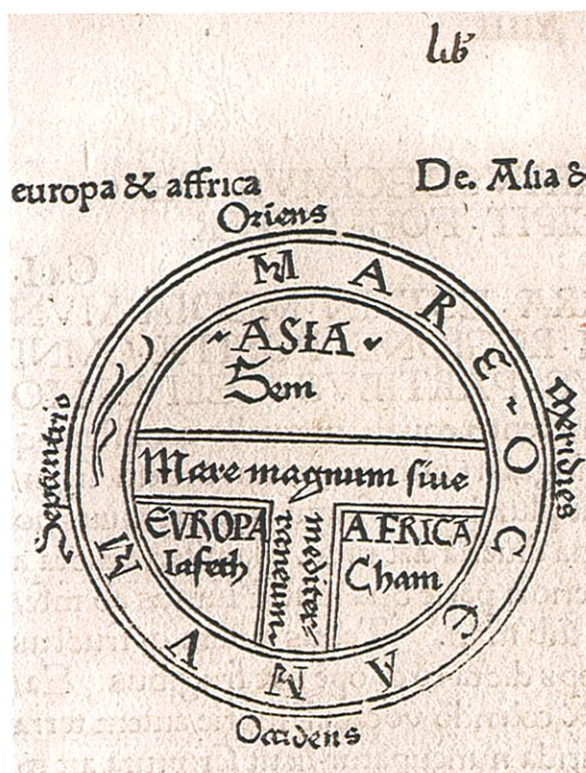 lib'
europa & affrica De. Asia &
Oriens
MARE OCEANVM
ASIA
Sem
Septentrio
Meridies
Mare magnum siue
mediter-
raneum
EVROPA
Iafeth
AFRICA
Cham
Occidens